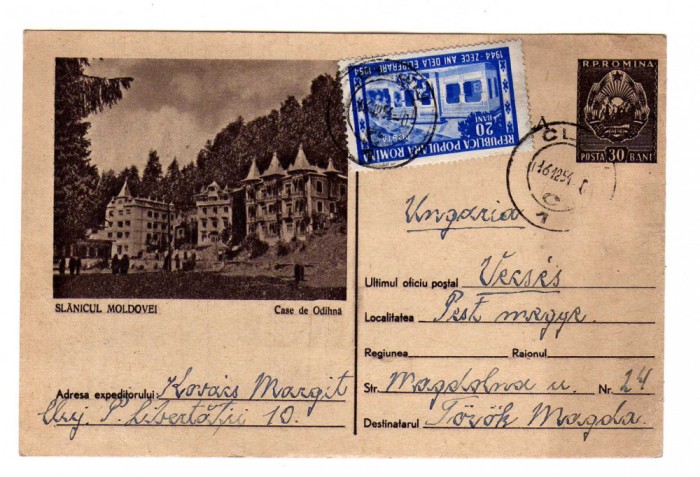 SLĂNICUL MOLDOVEI Case de Odihnă
Adresa expeditorului: Kovács Margit
Cluj. P. Libertății 10.
1944-ZECE ANI DELA ELIBERARE-1954
20 BANI
POSTA
REPUBLICA POPULARA ROMINA
R.P.ROMINA
POSTA 30 BANI
CLUJ
16 12 54
1
Ungaria
Ultimul oficiu poștal Vecsés
Localitatea Pest megye.
Regiunea Raionul
Str. Magdolna u. Nr. 24
Destinatarul Török Magda.